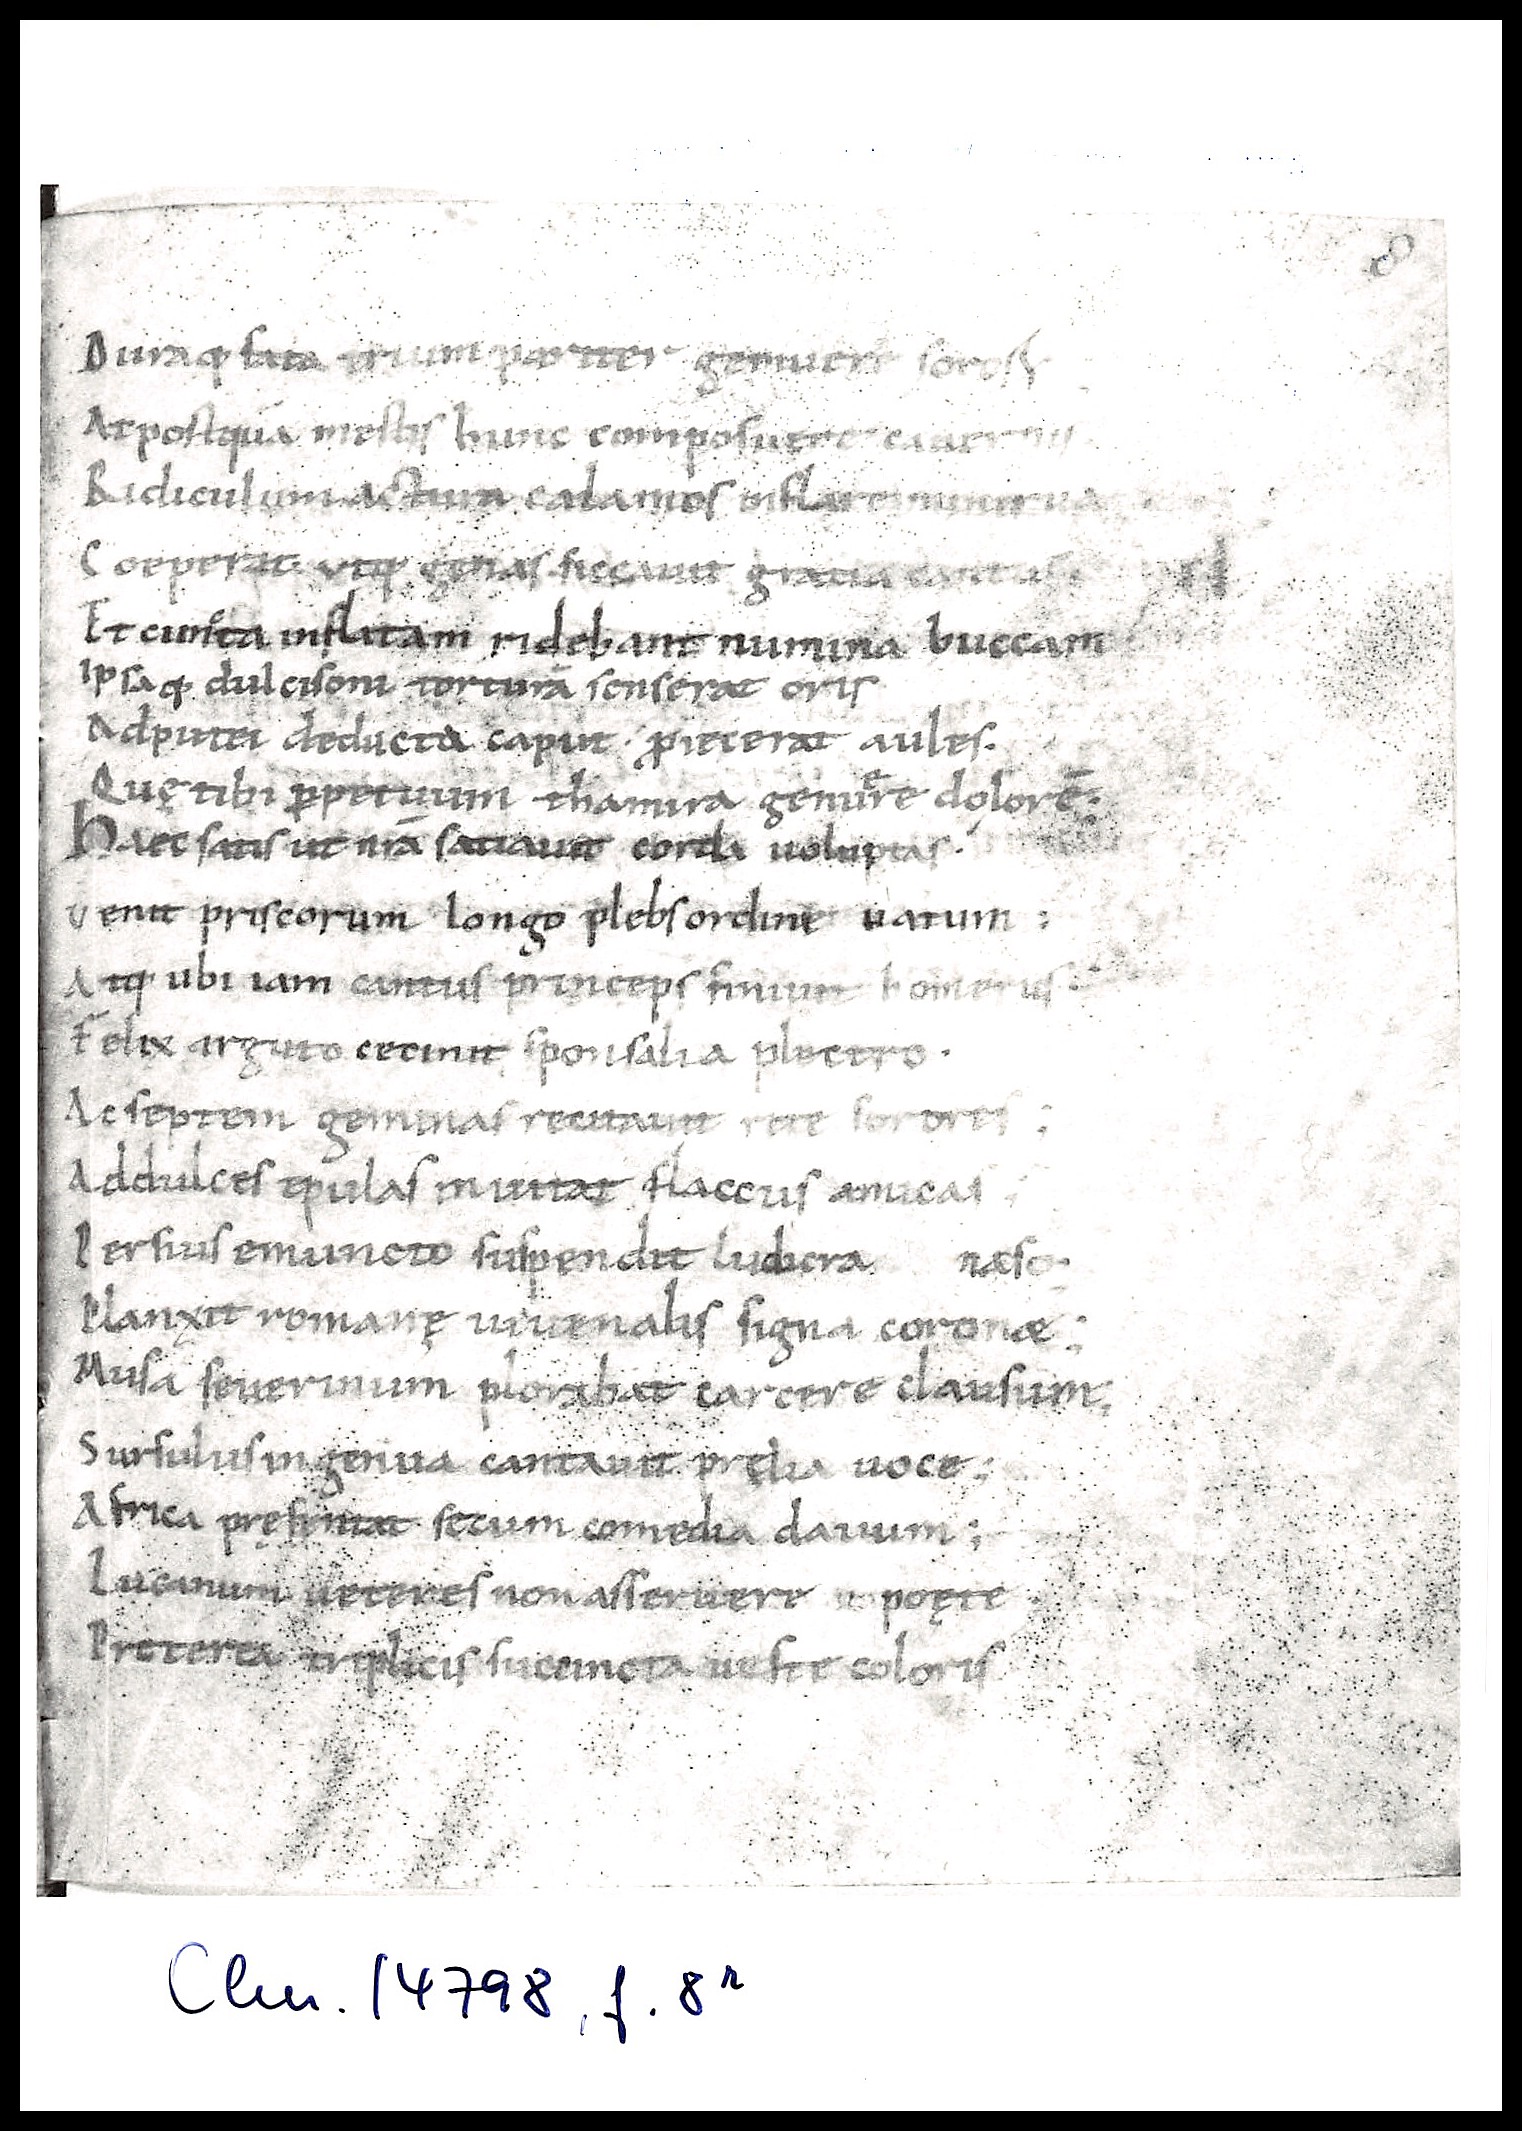 8
Duraq; fata trium pariter gemuere soror&
At postquā mestis hunc composuere cauernis
Ridiculum actura calamos inflare minerua
Coeperat. vtq; genas siccauit gratia cantus
Et cuncta inflatam ridebant numina buccam
Ipsaq; dulcisoni torturā senserat oris
Ad putei deducta caput. proiecerat aules.
Quę tibi ꝑpetuum thamira genuere dolorē.
Haec satis ut nrā satiauit corda uoluptas.
Venit priscorum longo plebs ordine uatum:
Atq; ubi iam cantus princeps finiuit homerus:
Felix arguto cecinit sponsalia plectro.
Ac septem geminas recitauit rete sorores;
Ad dulces epulas inuitat flaccus amicas;
Persius emuncto suspendit ludicra naso.
Planxit romanę uiuenalis signa coronæ;
Musa seuerinum plorabat carcere clausum;
Sursulus ingenua cantauit pręlia uoce;
Africa pręsentat secum comedia dauum;
Lucanum ueteres non asseruere poęte
Preterea triplicis succincta ueste coloris
Clm. 14798, f. 8r